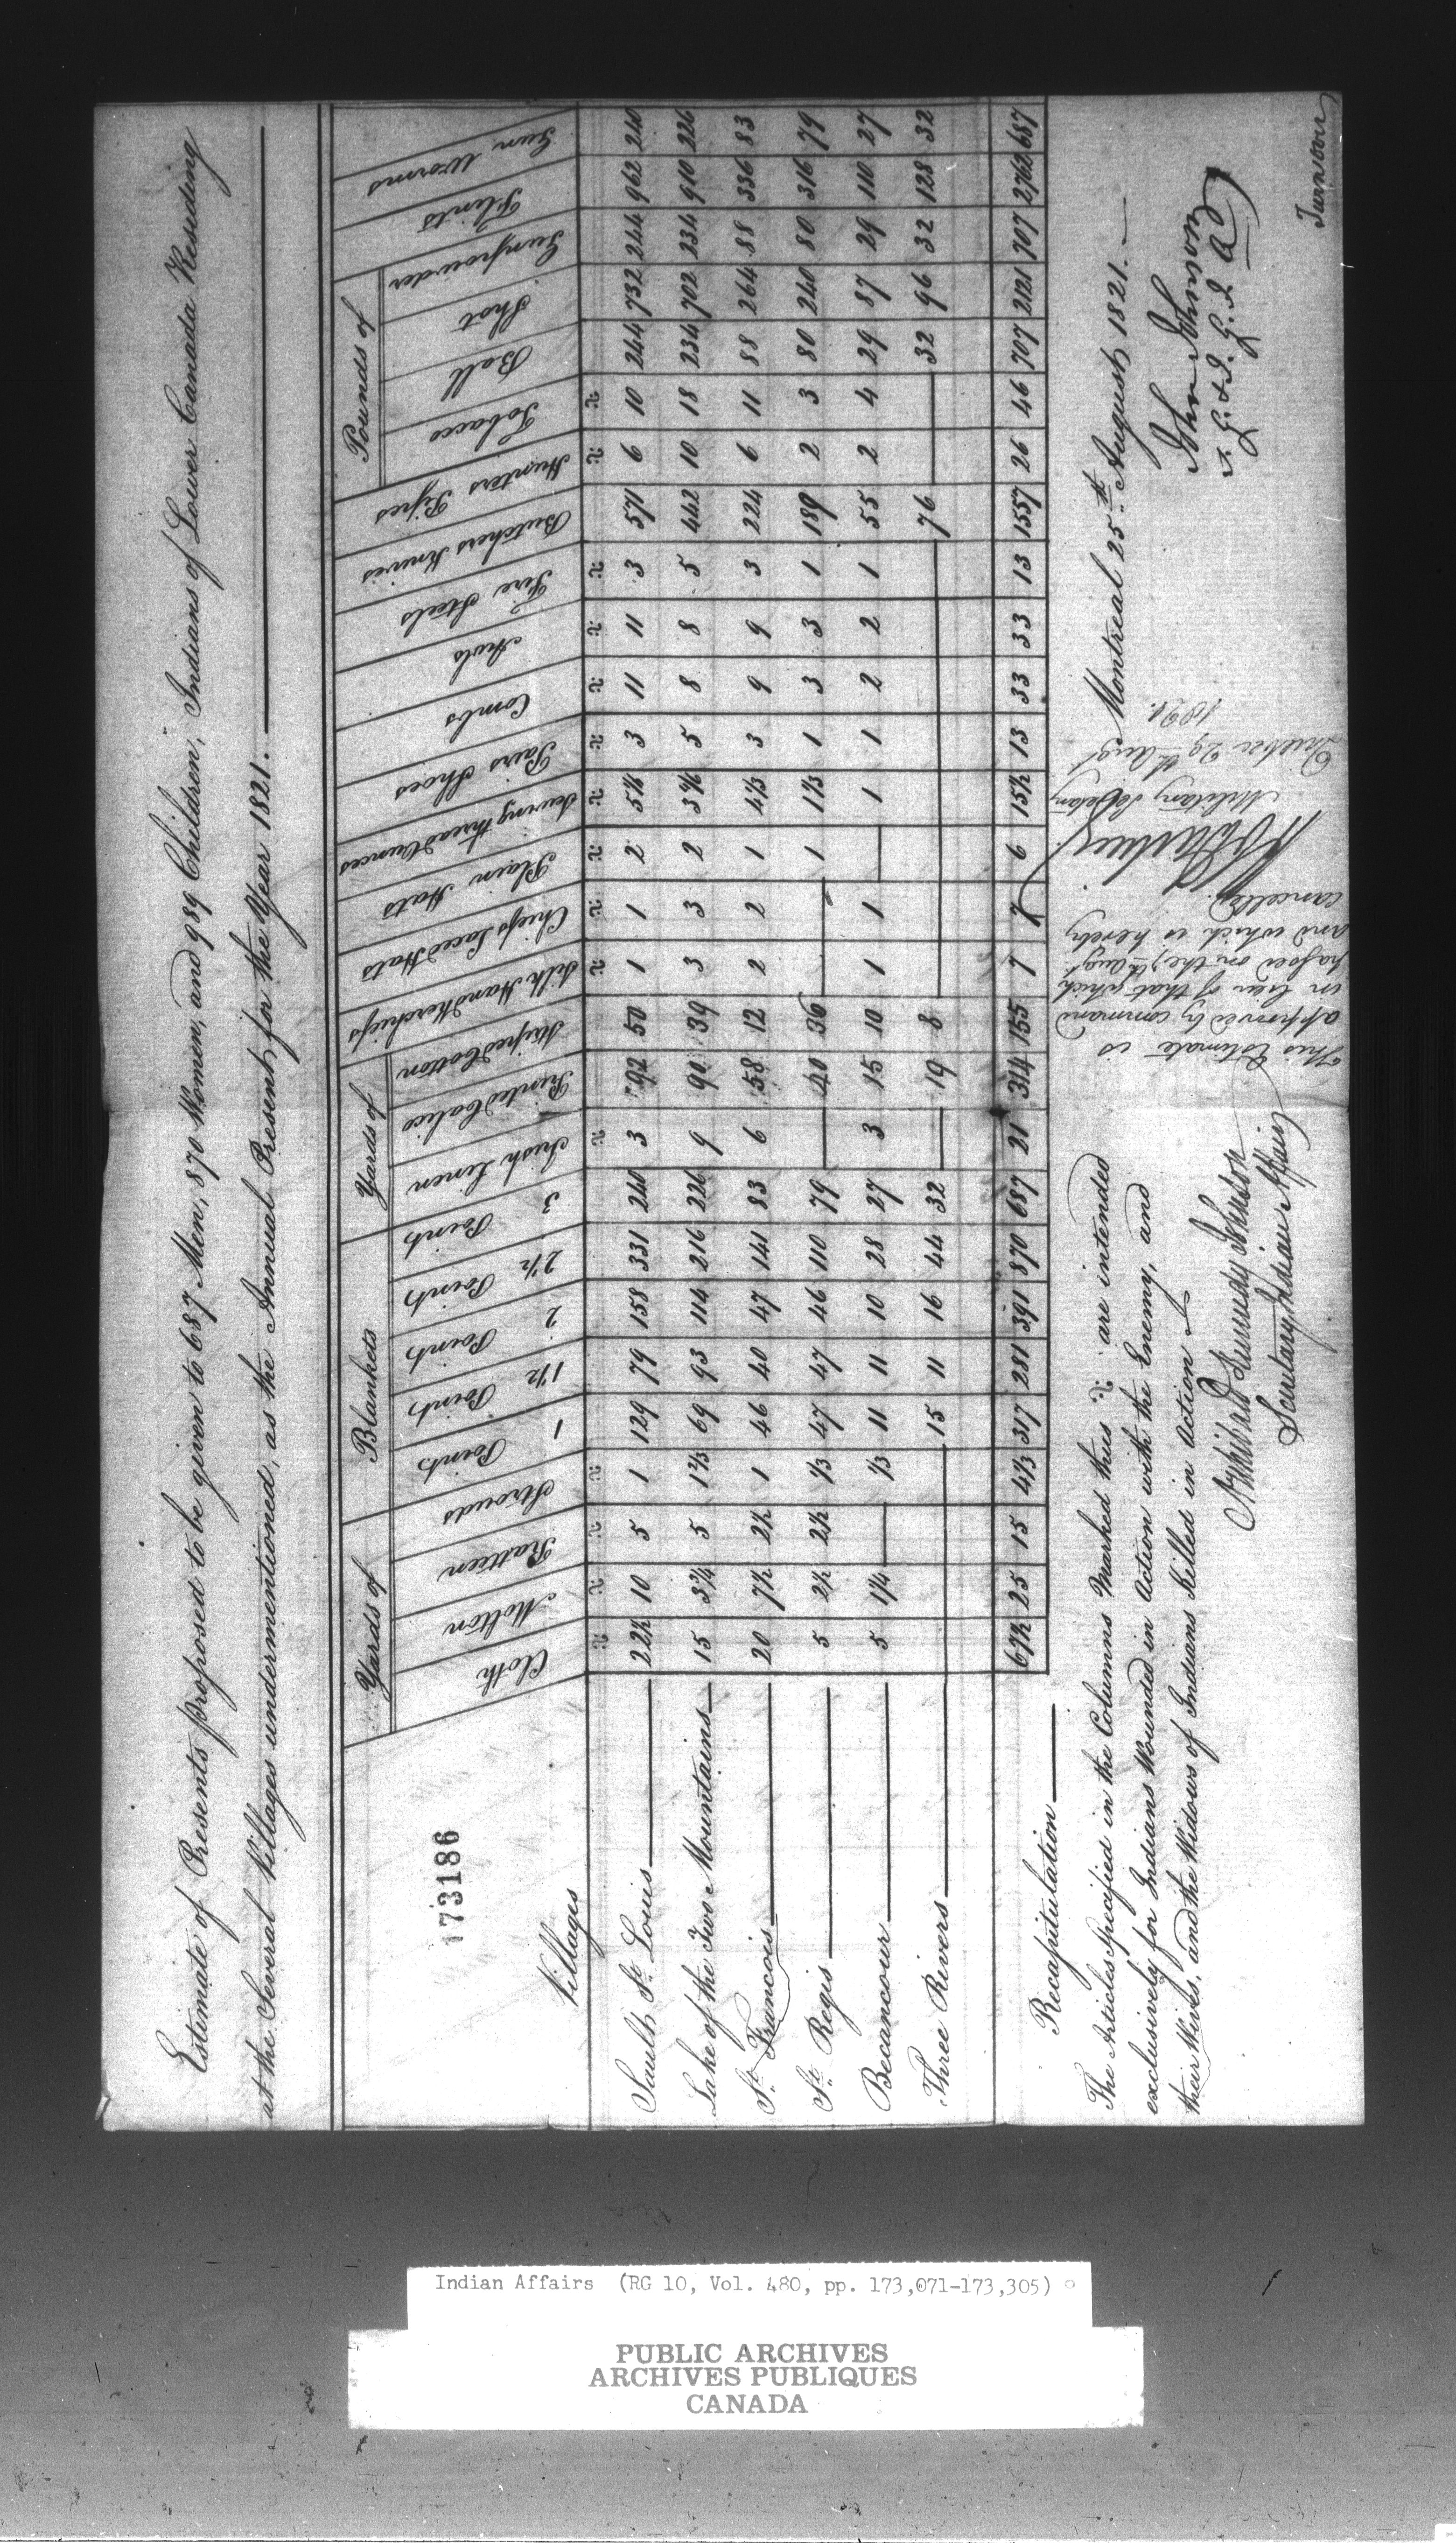 Estimate of Presents proposed to be given to 687 Men, 870 Women, and 989 Children, Indians of Lower Canada Residing
at the Several Villages undermentioned, as the Annual Present, for the Year 1821.
173186
Villages
Yards of
Cloth
Molton
Ratteen
Strouds
Blankets
1 Point
1½ Points
2 Points
2½ Points
3 Points
Yards of
Irish Linen
Printed Calico
Striped Cotton
Silk Handkerchiefs
Chiefs Laced Hats
Plain Hats
Sewing thread Ounces
Pairs Shoes
Combs
Awls
Fire Steels
Butchers Knives
Hunters Pipes
Pounds of
Tobacco
Ball
Shot
Gunpowder
Flints
Gun Worms
Sault St. Louis 22½ 10 5 1 129 79 158 331 240 3 92 50 1 1 2 5½ 3 11 11 3 571 6 10 244 732 244 962 240
Lake of the Two Mountains 15 3¾ 5 1⅔ 69 93 114 216 226 9 90 39 3 3 2 5 8 8 5 442 10 18 234 702 234 910 226
St. Francois 20 7½ 2½ 1 46 40 47 141 83 6 58 12 2 2 1 4⅓ 3 9 9 3 224 6 11 88 264 88 336 83
St. Regis 5 2½ 2½ ⅓ 47 47 46 110 79 — 40 36 — — 1 1⅓ 1 3 3 1 189 2 3 80 240 80 316 79
Becancour 5 1¼ — ⅓ 11 11 10 28 27 3 15 10 1 1 — 1 1 2 2 1 55 2 4 29 87 29 110 27
Three Rivers — 15 11 16 44 32 — 19 8 — 76 — 32 96 32 128 32
Recapitulation 67½ 25 15 4⅓ 317 281 391 870 687 21 314 155 7 7 6 15½ 13 33 33 13 1557 26 46 707 2121 707 2762 687
The Articles Specified in the Columns Marked thus are intended
exclusively for Indians Wounded in Action with the Enemy, and
their Wives, and the Widows of Indians Killed in Action
Archibald Kennedy Johnson
Secretary Indian Affairs
This Estimate is
approved by command
in lieu of that which
passed on the 7th Augt.
and which is hereby
cancelled.
Military Secretary
Quebec 29th Augt
1821.
Montreal 25th August 1821.
John Johnson
S. G. & I. G. I. A
Turn over
Indian Affairs (RG 10, Vol. 480, pp. 173,071-173,305)
PUBLIC ARCHIVES
ARCHIVES PUBLIQUES
CANADA